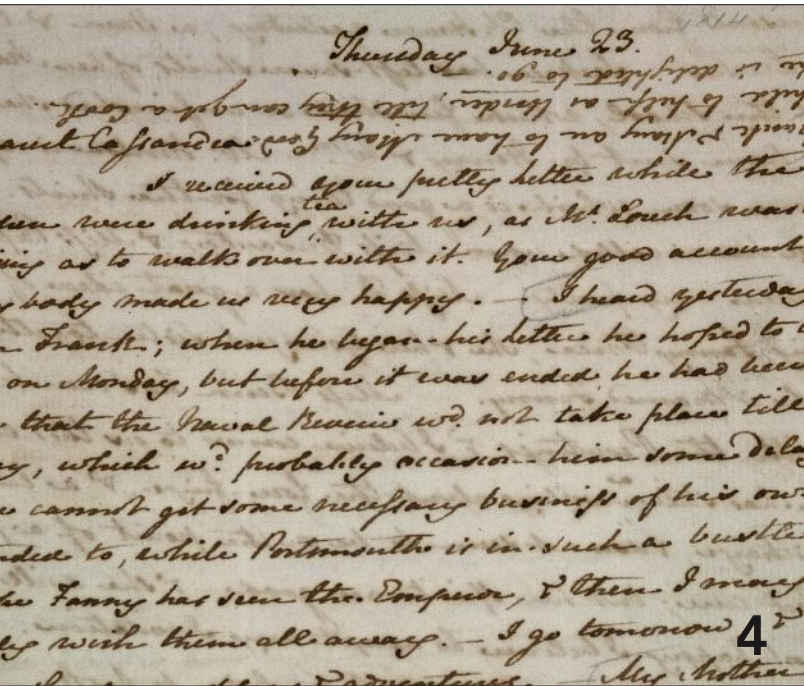 1814
Thursday June 23.
Frank & Mary are to have Mary Good
child to help as Under, till they can get a Cook.
She is delighted to go. —
Cassandra
I received your pretty Letter while the
were drinking tea with us, as Mr. Louch was
as to walk over with it. Your good account
body made us very happy. — I heard yesterday
Frank; when he began his Letter he hoped to
on Monday, but before it was ended he had been
that the Naval Review wd. not take place till
which wd. probably occasion him some delay
cannot get some necessary business of his own
to, while Portsmouth is in such a bustle
Fanny has seen the Emperor, & then I may
wish them all away. — I go tomorrow, &
& adventures. — My Mother
4